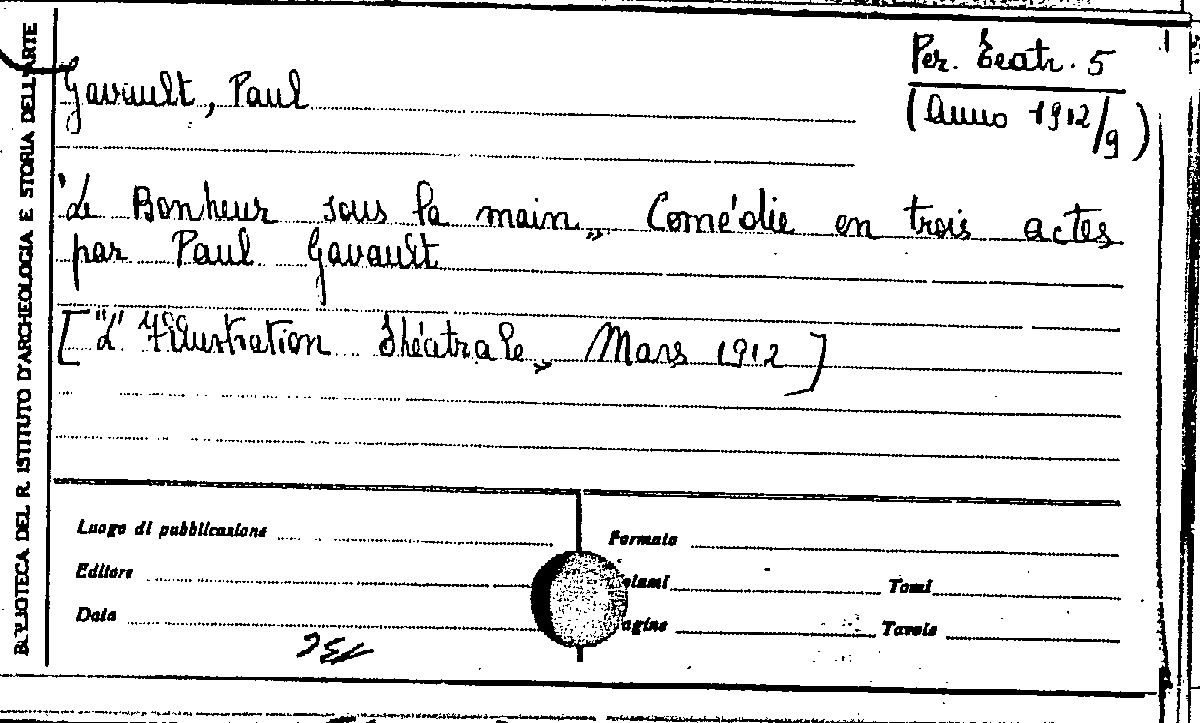 BIBLIOTECA DEL R. ISTITUTO D'ARCHEOLOGIA E STORIA DELL'ARTE
Per. Teatr. 5
(Anno 1912/9)
Gavault, Paul
"Le Bonheur sous la main„ Comédie en trois actes
par Paul Gavault
["L'Illustration Théatrale„ Mars 1912]
Luogo di pubblicazione
Formato
Editore
Tomi
Data
Tavole